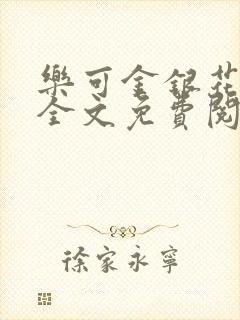 樂可金銀花
全文免費閱
徐家永寧